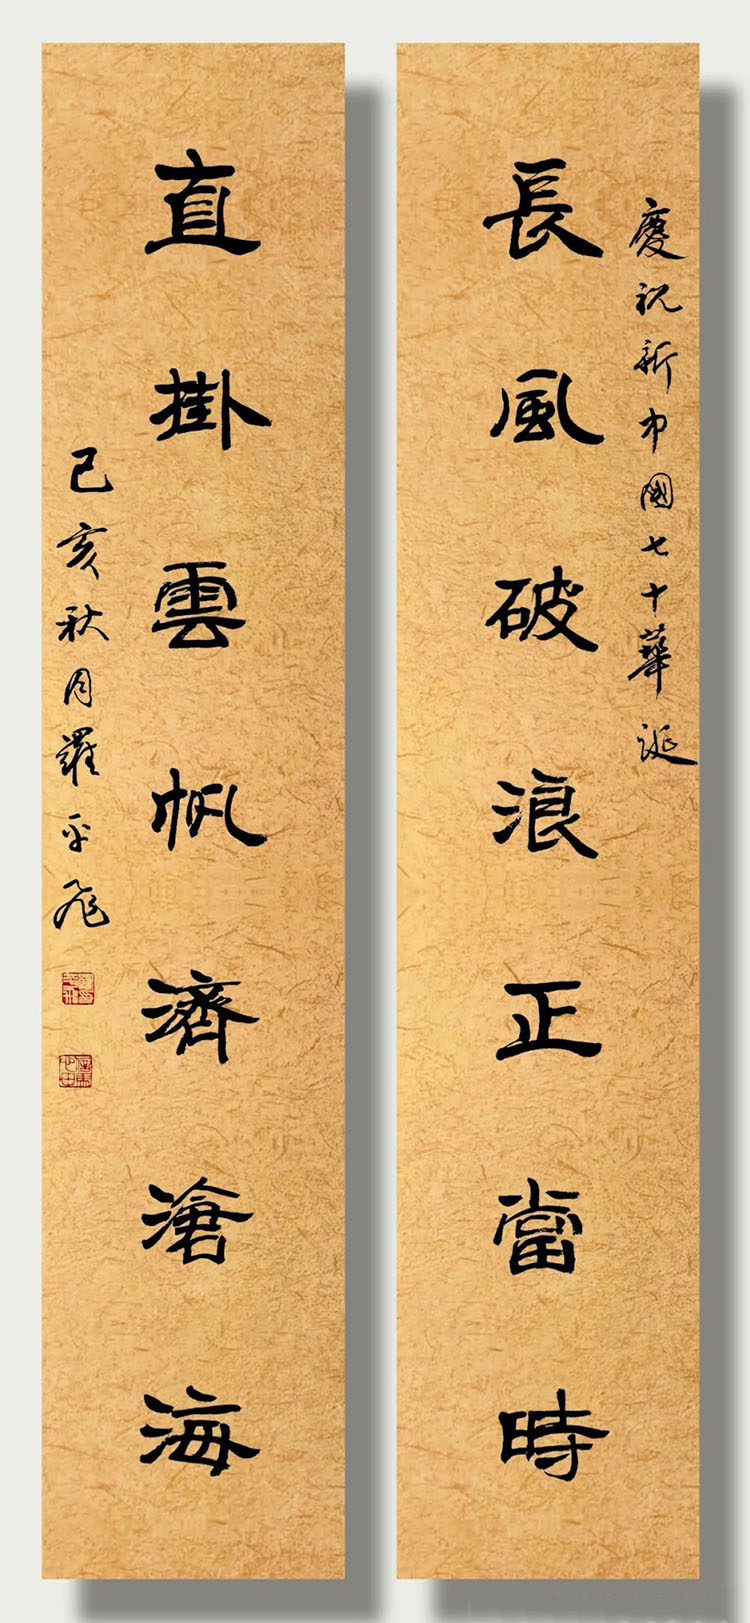 慶祝新中國七十華誕
長風破浪正當時
直掛雲帆濟滄海
己亥秋月羅平飛